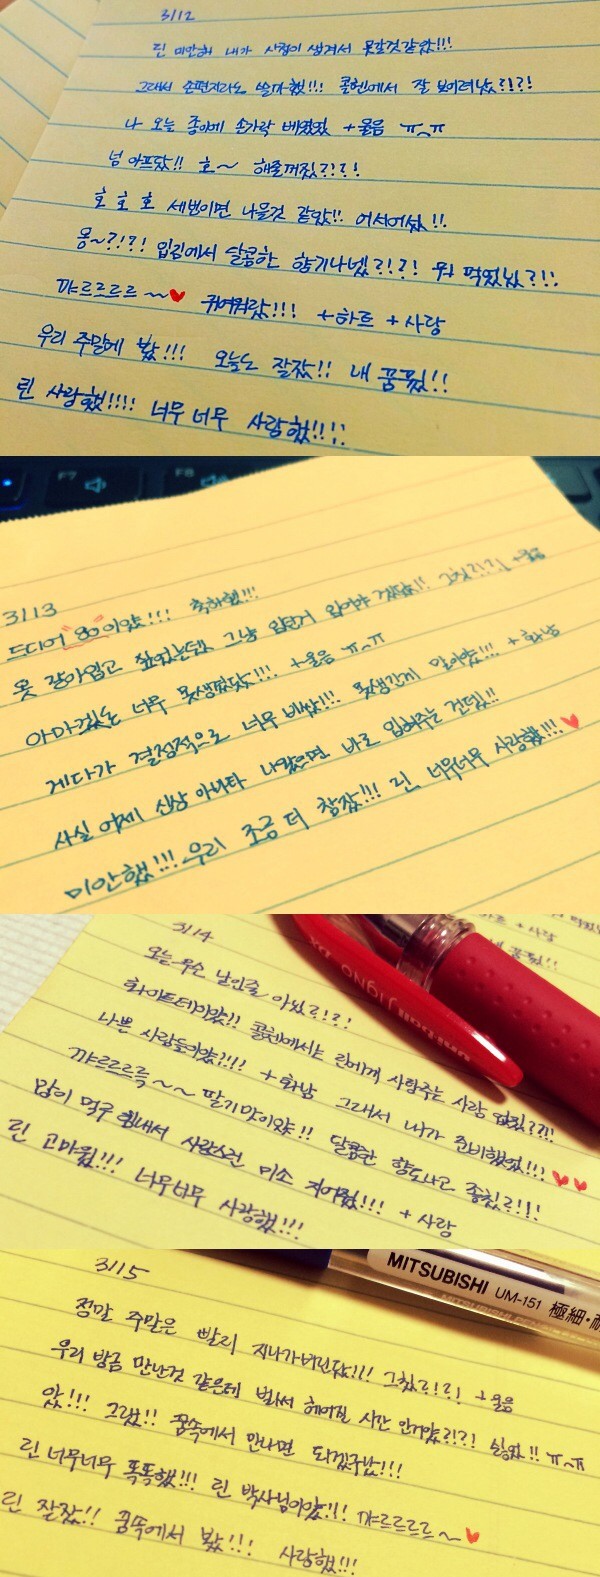 3/12
린 미안해 내가 사정이 생겨서 못갈것같았!!!
그래서 손편지라도 쓸까했!!! 콜헨에서 잘 보이려났?!?!
나 오늘 종이에 손가락 베였었 +울음 ㅠ_ㅠ
넘 아프닸!! 호~ 해줄꺼줬?!?!
호 호 호 세번이면 나을것 같았!! 어서어섰!!
옹~?!?! 입김에서 달콤한 향기나넸?!?! 뭐 먹었닜?!!
꺄르르르르~~♥ 귀여워랐!!! +하트 +사랑
우리 주말에 봤!!! 오늘도 잘잤!! 내 꿈꿨!!
린 사랑했!!!! 너무너무 사랑했!!!!
F7 F8
3/13
드디어 "80"이었!!! 축하했!!!
옷 갈아입고 싶었는뎄 그냥 입던거 입어야 겠닸!! 그칬?!?! +울음
아마겠는 너무 못생겼닸!!! +울음 ㅠ_ㅠ
게다가 결정적으로 너무 비쌌!!! 못생긴게 말이얐!!! +화남
사실 어제 신상 아바타 나왔으면 바로 입혀주는 건뎄!!
미안했!!! 우리 조금 더 참잤!!! 린 너무너무 사랑했!!! ♥
3/14
오늘 무슨 날인줄 아났?!?!
화이트데이얐!! 콜헨에서는 린에게 사탕주는 사람 없줬??!!
나쁜 사람들이얐?!!! +화남 그래서 내가 준비했었!!! ♥♥
꺄르르르륵~~ 딸기맛이얐!! 달콤한 향도나고 좋칬?!!!
많이 먹구 힘내서 사랑스런 미소 지어줬!!! +사랑
린 고마웠!!! 너무너무 사랑했!!!
uni-ball SIGNO DX
+ 사랑
내 꿈꿨!!
3/15
정말 주말은 빨리 지나가버린닸!!! 그칬?!?! +울음
우리 방금 만난것 같은데 벌써 헤어질 시간 인거얐?!?! 싫었!! ㅠ_ㅠ
았!!! 그랬!! 꿈속에서 만나면 되겠구났!!!
린 너무너무 똑똑했!!! 린 박사님이얐!!! 꺄르르르르~♥
린 잘잤!! 꿈쏙에서 봤!!! 사랑했!!!
MITSUBISHI UM-151 極細・耐